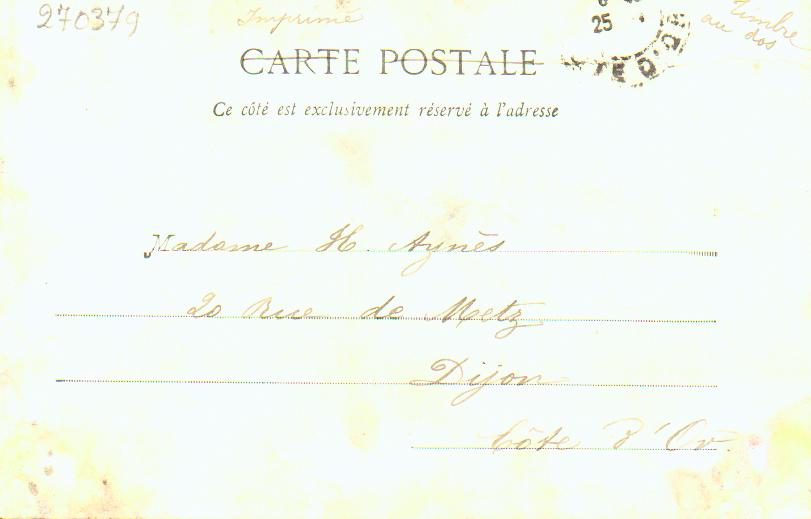 270379
Imprimé
Timbre
au dos
25
CARTE POSTALE
Ce côté est exclusivement réservé à l'adresse
Madame H. Aynès
20 Rue de Metz
Dijon
Côte d'Or